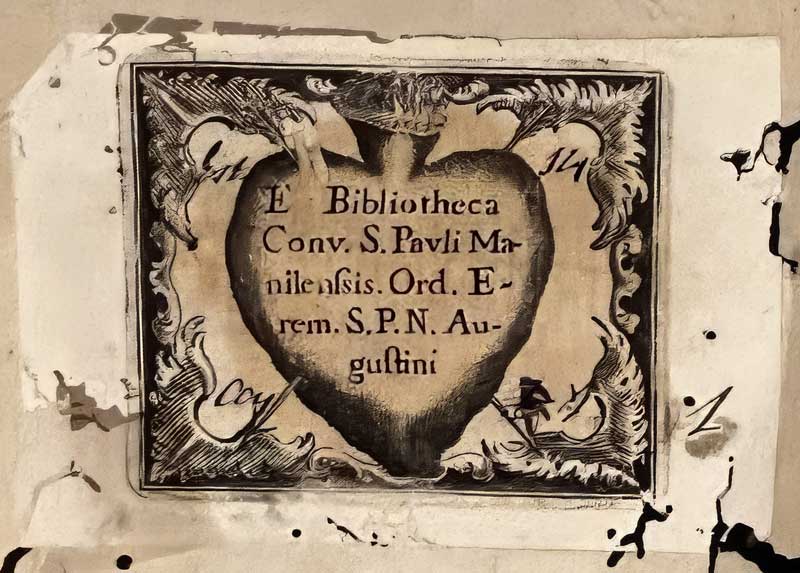 14
E Bibliotheca
Conv. S. Pavli Ma-
nilenſsis. Ord. E-
rem. S. P. N. Au-
guſtini